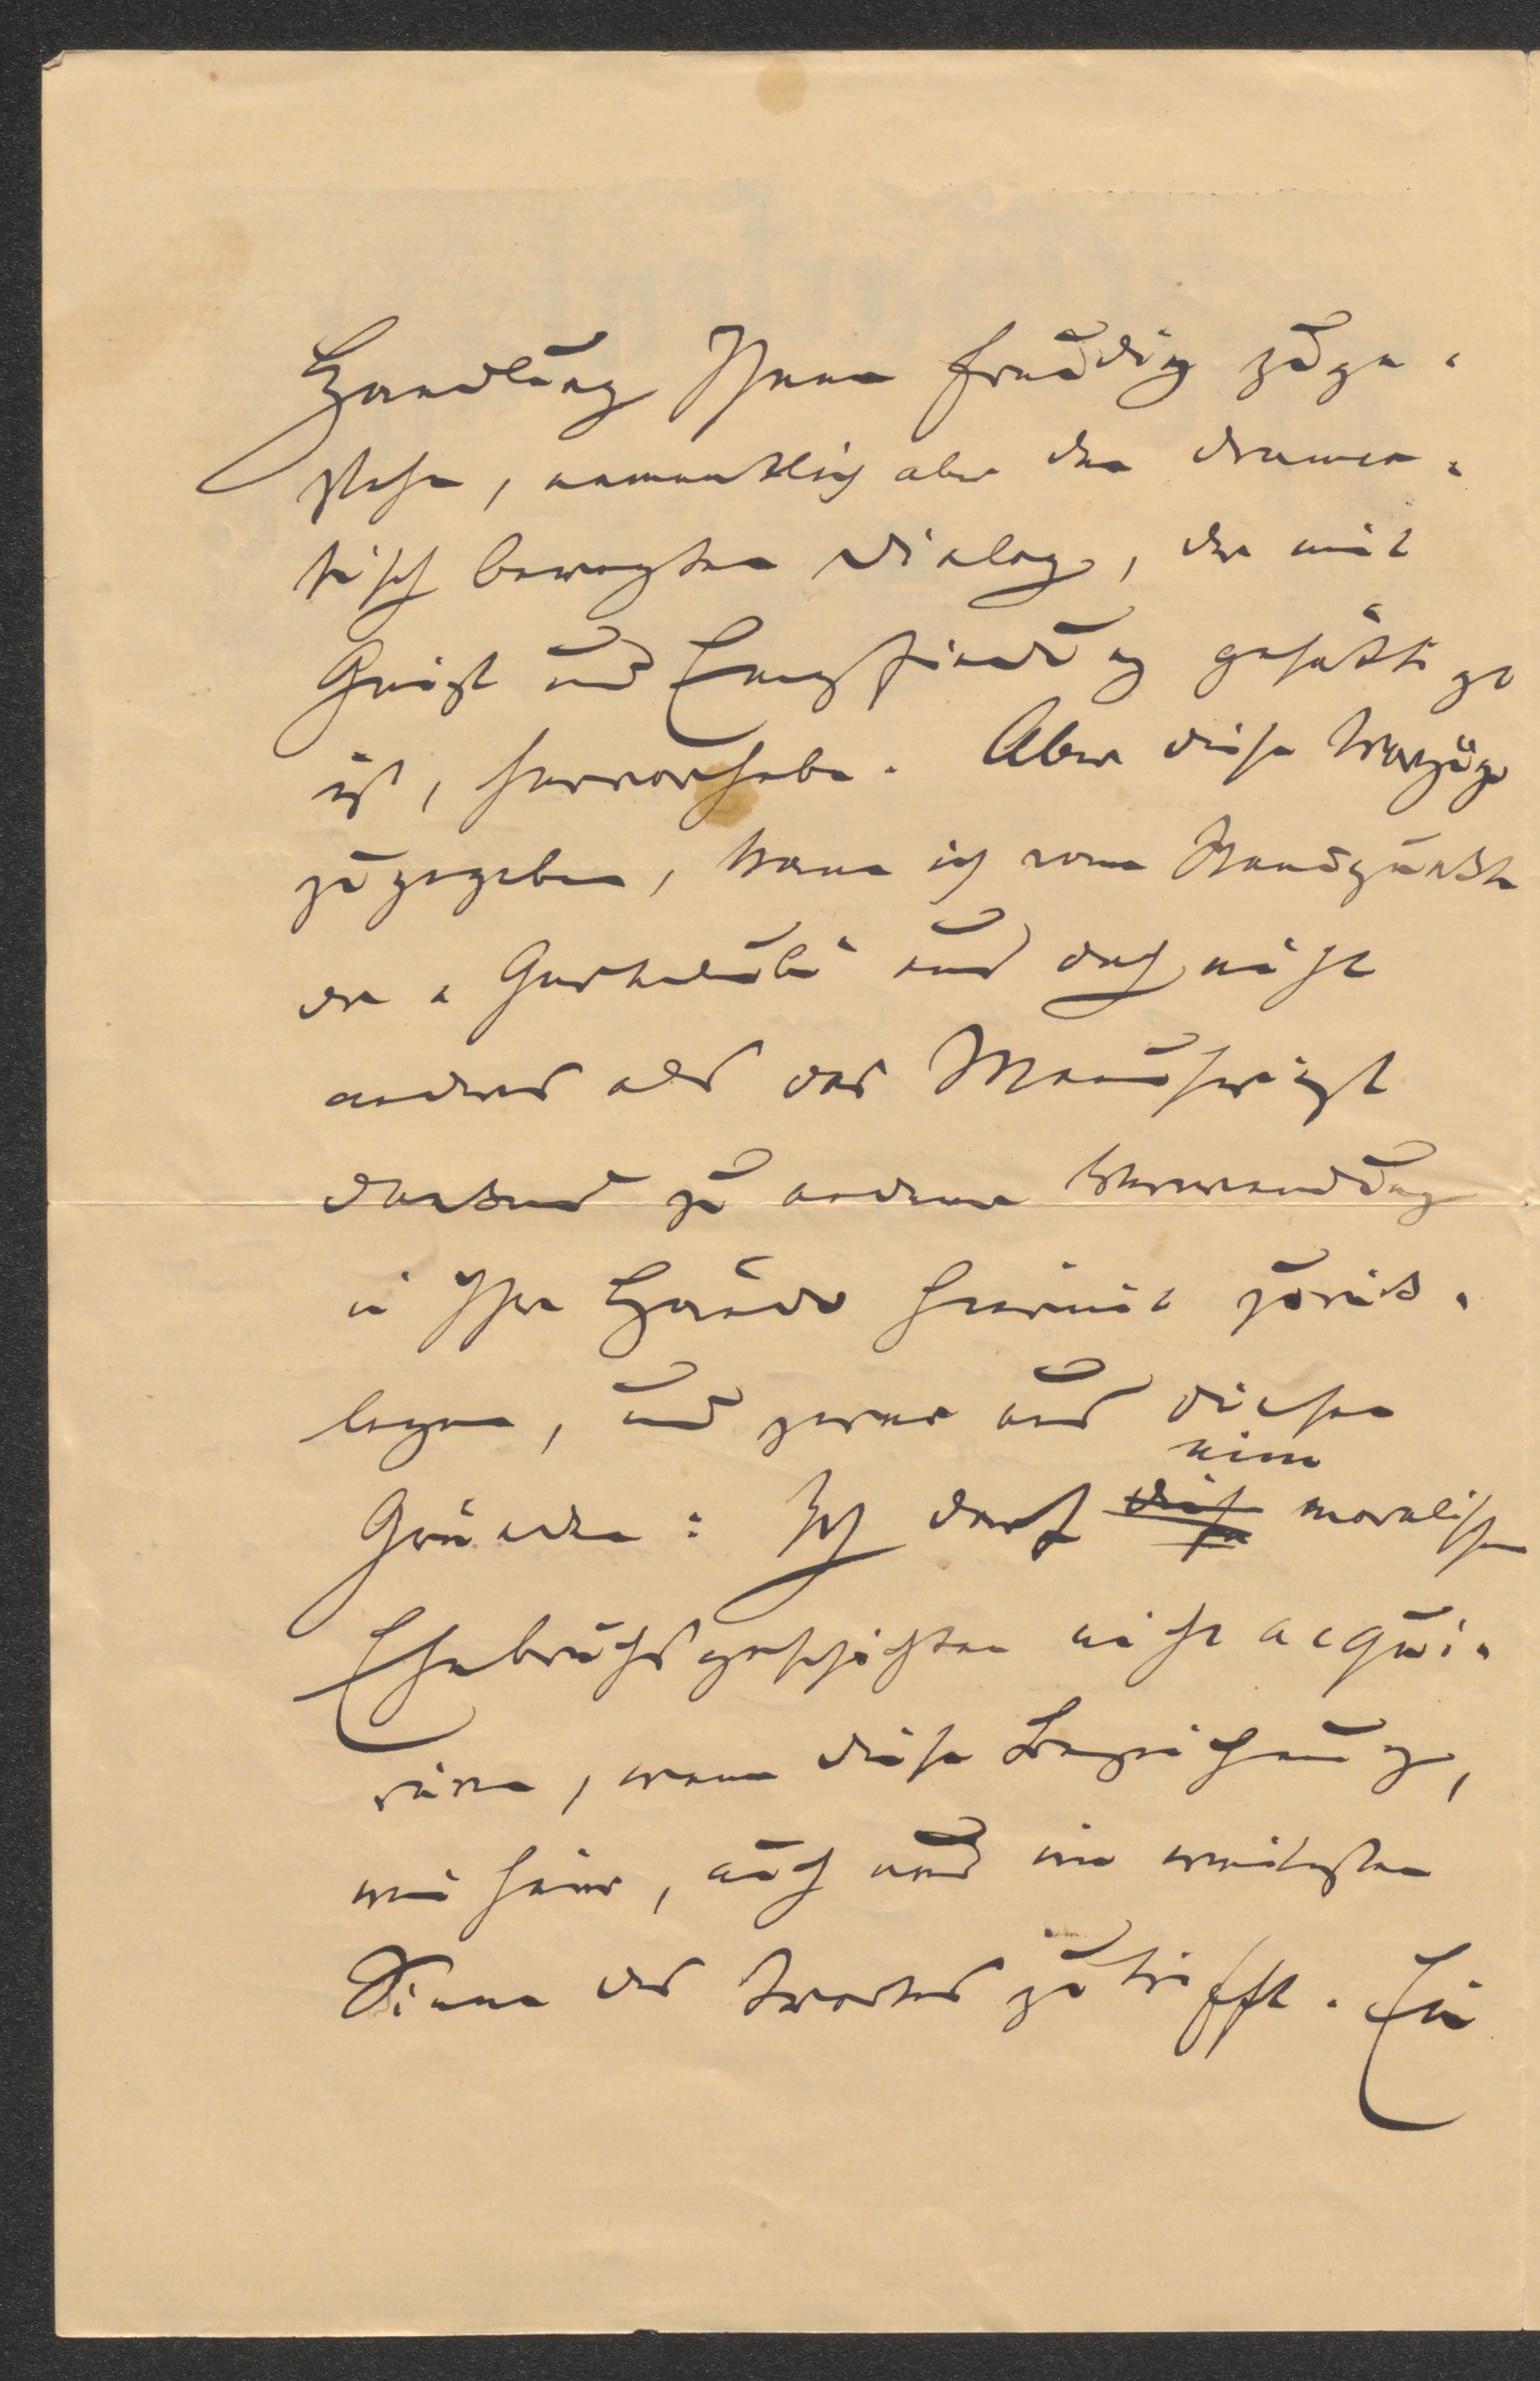 Handlung Ihnen freudig zuge-
stehe, namentlich aber den drama-
tisch bewegten Dialog, der mit
Geist und Empfindung gesättigt
ist, hervorhebe. Aber diese Vorzüge
zugegeben, kann ich vom Standpunkte
der „Gartenlaube“ aus doch nicht
anders als das Manuscript
dankend zu anderer Verwendung
in Ihre Hände hiermit zurück-
legen, und zwar aus diesen
Gründen: Ich darf diese moralischen
Ehebruchsgeschichten nicht acqui-
riren, wenn diese Bezeichnung,
wie hier, auch nur im weitesten
Sinne des Wortes zutrifft. Ein